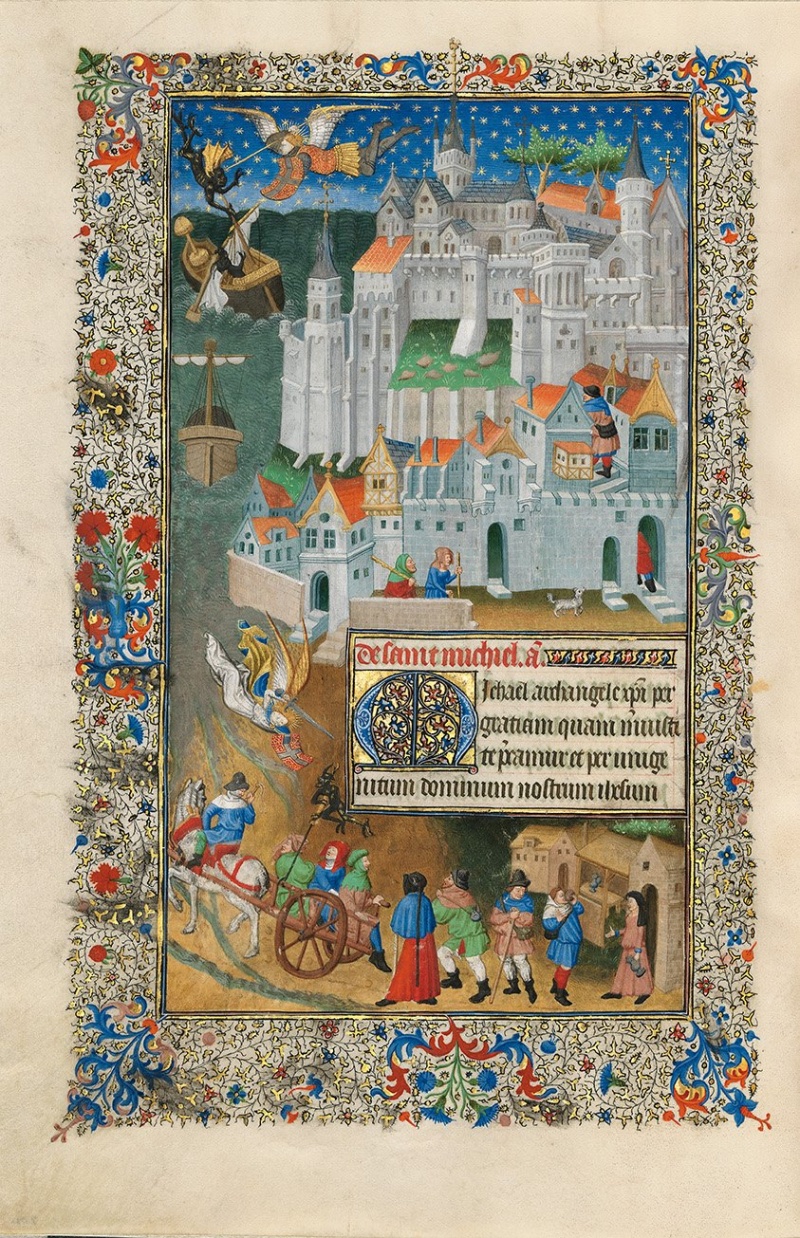 De saint michiel. añ.
Ichael archangele xp̄i per
gratiam quam meruisti
te p̄camur et per unige
nitum dominum nostrum ihesum